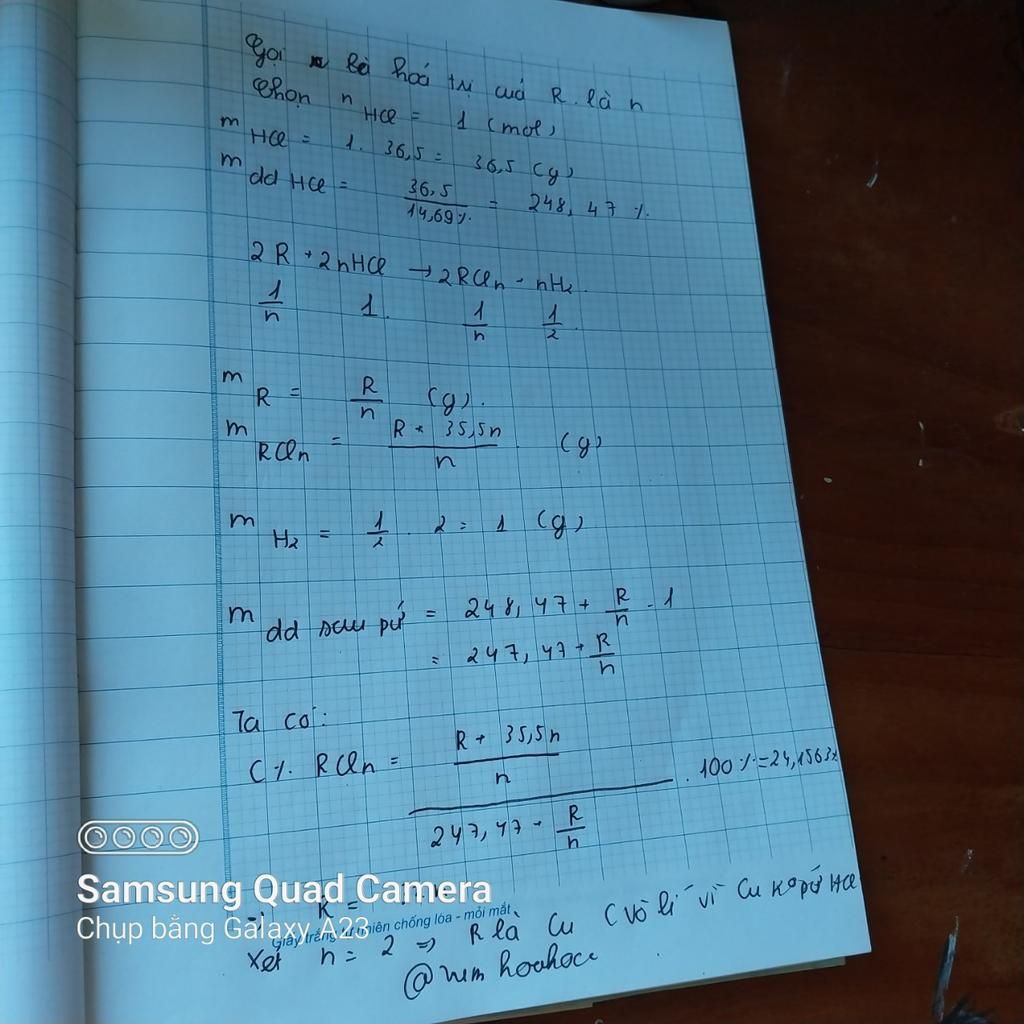 Gọi là hoá trị cuả R là n
Chọn n HCl = 1 (mol)
m HCl = 1. 36,5 = 36,5 (g)
m dd HCl = 36,5 / 14,69% = 248,47 %.
2R + 2nHCl → 2RCln + nH2.
1/n 1. 1/n 1/2.
m R = R/n (g).
m RCln = R + 35,5n / n (g)
m H2 = 1/2 . 2 = 1 (g)
m dd sau pứ = 248,47 + R/n - 1
= 247,47 + R/n
Ta có:
C% RCln = (R + 35,5n / n) / (247,47 + R/n) . 100% = 24,1563%
Samsung Quad Camera
Chụp bằng Galaxy A23
Giấy trắng tự nhiên chống lóa - mỏi mắt
=> R =
Xét n = 2 => R là Cu (vô lí vì Cu ko pứ HCl